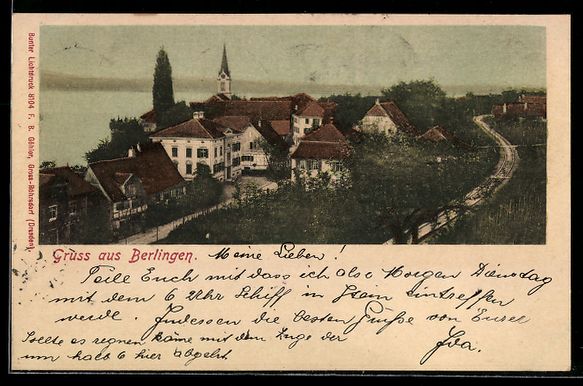 Bunter Lichtdruck 8104 F. B. Gähler, Gross-Röhrsdorf (Dresden).
Gruss aus Berlingen.
Meine Lieben!
Teile Euch mit dass ich also Morgen Dienstag
mit dem 6 Uhr Schiff in eintreffen
werde. Indessen die besten Grüße von Eurer
Sollte es regnen käme mit dem Zuge der Ida.
um halb 6 hier abgeht.